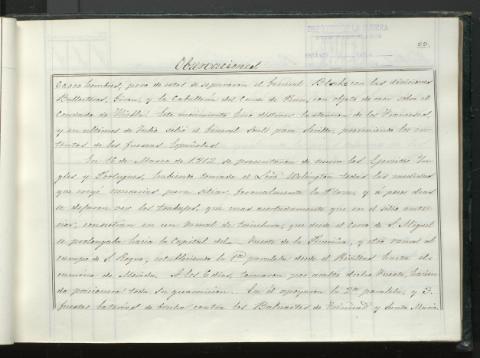 22.
Observaciones
hombres, pero de estos se separaron el General Blake con las divisiones
Ballesteros, y la Caballeria del Conde de con objeto de caer sobre el
Condado de Niebla. Este movimiento hizo distraer la atencion de los Franceses,
y en ultimos de Julio salió el General Soult para Sevilla, previniendo los in-
tentos de las fuerzas Españolas.
En 16 de Marzo de 1812 se presentaron de nuevo los Ejercitos In-
gles y Portugues, habiendo tomado el Lord Welington todas las medidas
que creyó necesarias para sitiar formalmente la Plaza, y á pocos dias
se dejaron ver los trabajos, que mas acertadamente que en el sitio ante-
rior, consistian en un ramal de trinchera, que desde el Cerro de S. Miguel
se prolongaba hacia la Capital del Fuerte de la Picuriña, y otro ramal al
campo de S. Roque, estableciendo la 1ª paralela desde el Rivillas hasta el
camino de Merida. A los 8 dias, tomaron por asalto dicho Fuerte, hacien-
do prisionera toda su guarnicion. En él apoyaron la 2ª paralela, y 3.
fuertes baterias de brecha contra los Baluartes de Trinidad y Santa Maria.